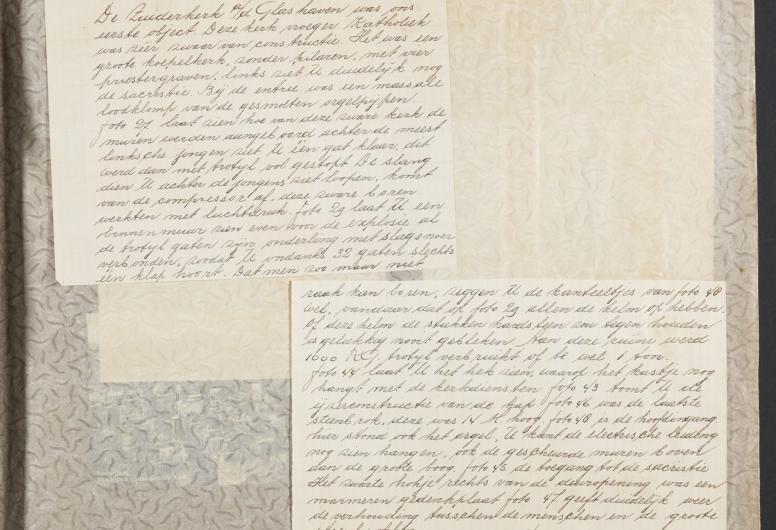 De Zuiderkerk a/d Glashaven was ons
eerste object Deze kerk vroeger Katholiek
was zéér zwaar van constructie. Het was een
groote koepelkerk, zonder pilaren, met vier
priestergraven, links ziet U duidelijk nog
de sacrestie. Bij de entrée was een massale
loodklomp van de gesmolten orgelpijpen
foto 27 laat zien hoe van deze zware kerk de
muren werden aangeboord achter de meest
linksche jongen ziet U één gat klaar, dit
werd dan met trotyl vol gestopt De slang
dien U achter de jongens ziet loopen, komt
van de compressor af, deze zware boren
werkten met luchtdruk. foto 29 laat U een
binnenmuur zien even voor de explosie al
de trotyl gaten zijn onderling met slagsnoer
verbonden, zoodat U ondanks 32 gaten slechts
één klap hoort. Dat men zoo maar niet
raak kan boren, zeggen U de kanteeltjes van foto 48
wel, vandaar dat op foto 29 allen de helm op hebben.
Of deze helm de stukken hardsteen zou tegen houden
is gelukkig nooit gebleken Aan deze ruïne werd
1600 KG. trotyl verbruikt of te wel 1 ton.
foto 44 laat U het hek zien, waarop het kastje nog
hangt met de kerkdiensten foto 43 toont U de
ijzerconstructie van de kap foto 46 was de laatste
steenbrok, deze was 14 M. hoog. foto 48 is de hoofdingang
hier stond ook het orgel, U kunt de electrische leiding
nog zien hangen, ook de gescheurde muren boven
aan de groote boog. foto 45 de toegang tot de sacrestie
Het zwarte hokje rechts van de deuropening was een
marmeren gedenkplaat foto 47. geeft duidelijk weer
de verhouding tusschen de menschen en de groote